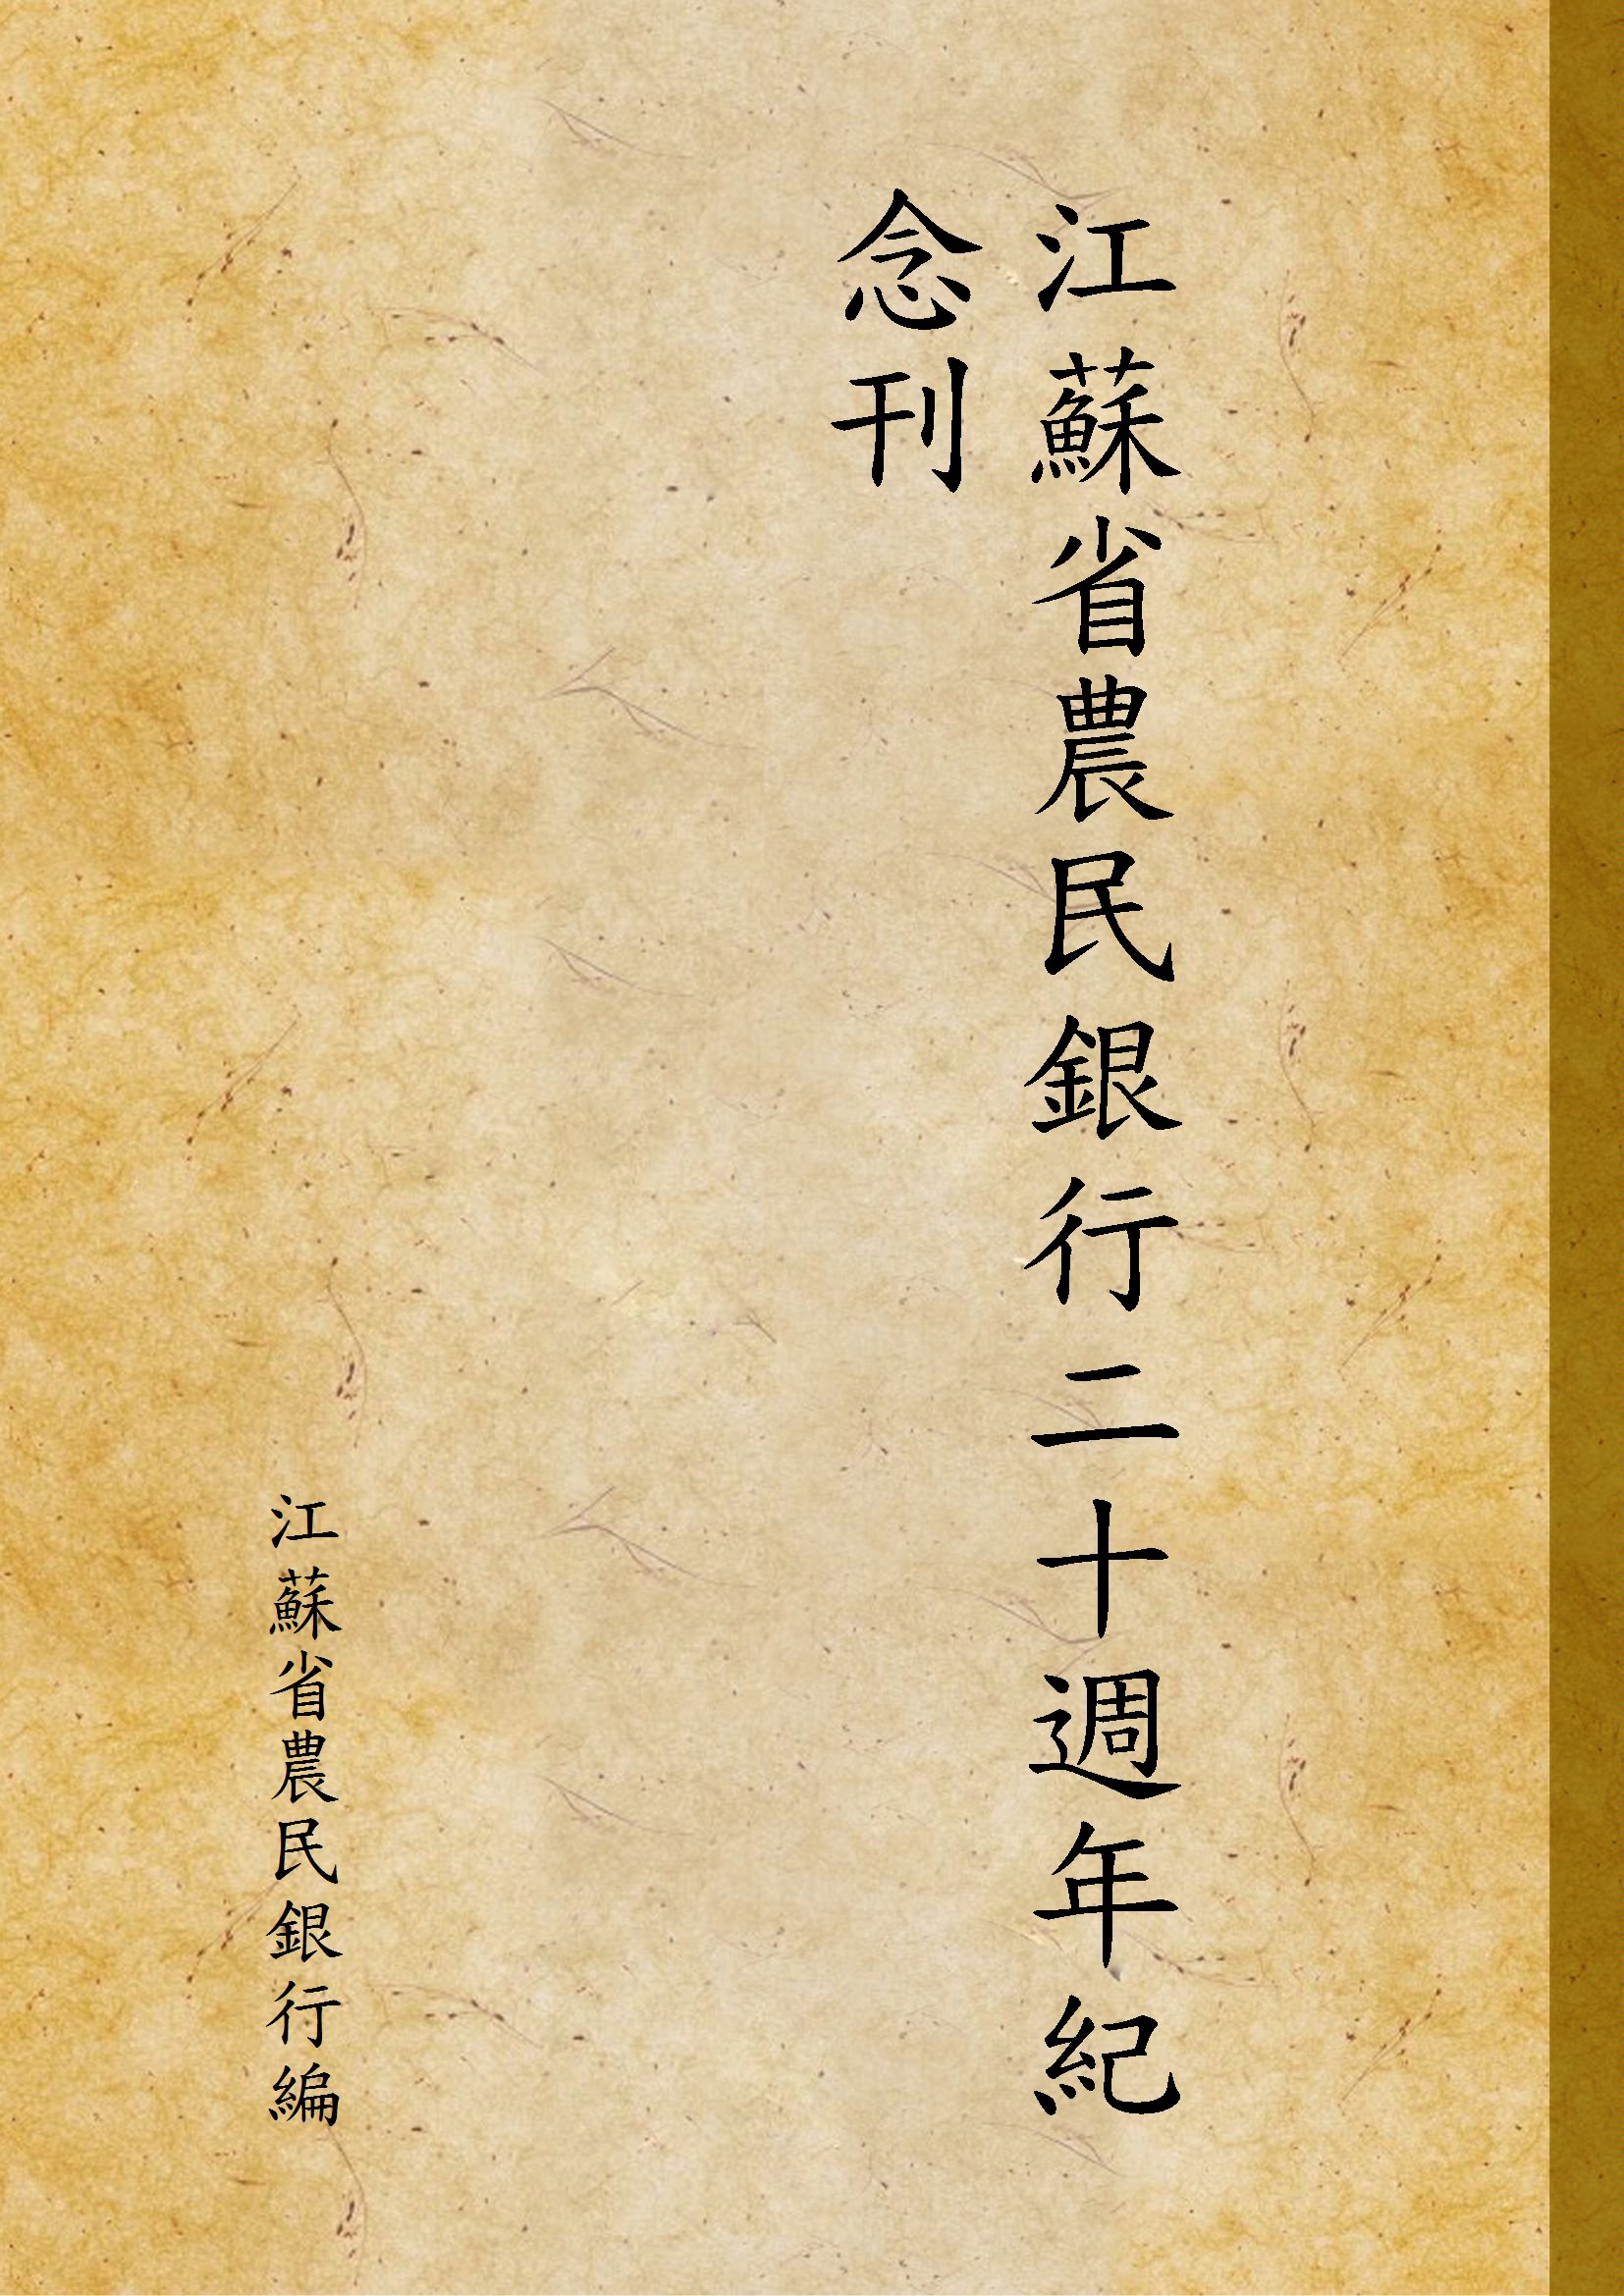 江蘇省農民銀行二十週年紀
念刊
江蘇省農民銀行編